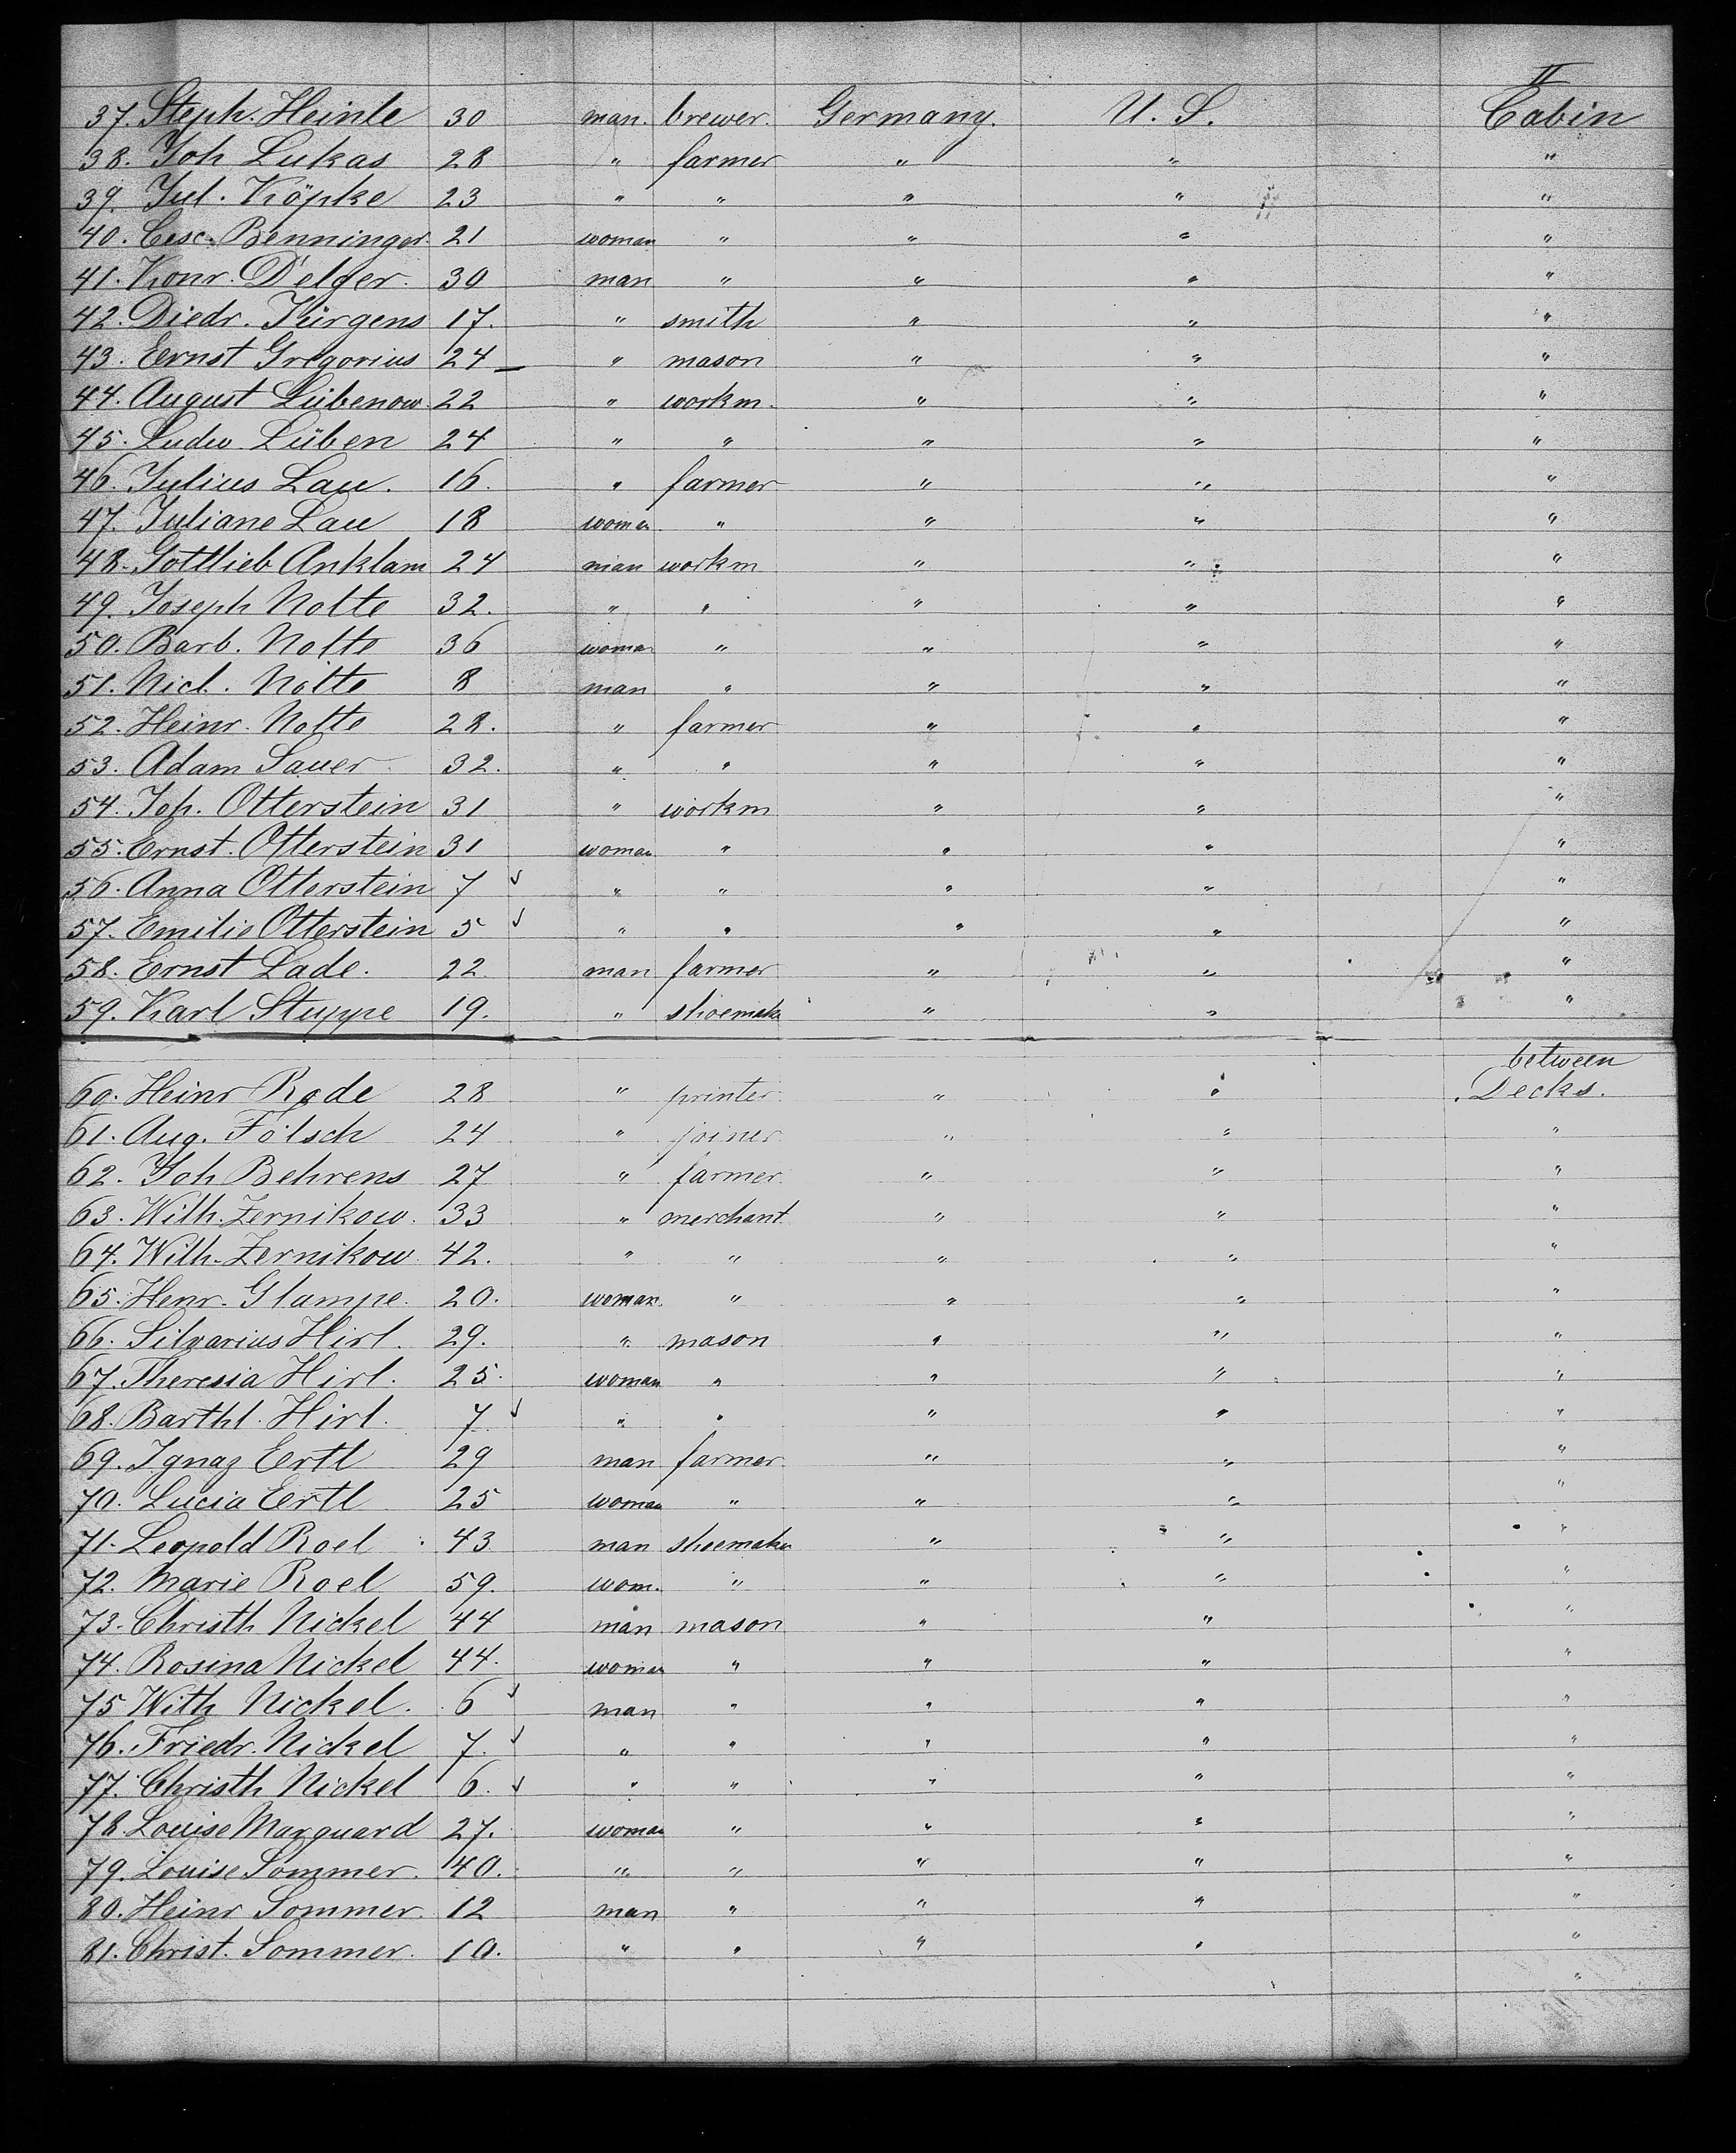 II
37. Steph. Heinle 30 man. brewer. Germany. U. S. Cabin
38. Joh Lukas 28 " farmer " " "
39. Jul. Köpke 23 " " " " "
40. Cesc. Benninger. 21 woman " " " "
41. Konr. 30 man " " " "
42. Diedr. Jürgens 17. " smith " " "
43. Ernst Gregorius 24 " mason " " "
44. August Lübenow 22 " workm. " " "
45. Ludw Lüben 24 " " " " "
46. Julius Lau. 16. " farmer " " "
47. Juliane Lau 18 woman " " " "
48. Gottlieb Anklam 24 man workm " " "
49. Joseph Nolte 32. " " " " "
50. Barb. Nolte 36 woman " " " "
51. Nicl. Nolte 8 man " " " "
52. Heinr. Nolte 28. " farmer " " "
53. Adam Sauer 32. " " " " "
54. Joh. Otterstein 31 " workm " " "
55. Ernst. Otterstein 31 woman " " " "
56. Anna Otterstein 7 " " " " "
57. Emilie Otterstein 5 " " " " "
58. Ernst Lade. 22 man farmer " " "
59. Karl Stuppe 19. " shoemaker " " "
between
60. Heinr Rode 28 " printer " " Decks.
61. Aug. Fölsch 24 " joiner " " "
62. Joh Behrens 27 " farmer " " "
63. Wilh. Zernikow. 33 " merchant " " "
64. Wilh. Zernikow 42. " " " " "
65. Henr. Glampe. 20. woman " " " "
66. Silvarius Hirl. 29. " mason " " "
67. Theresia Hirl. 25. woman " " " "
68. Barthl. Hirl. 7 " " " " "
69. Ignaz Eertl 29 man farmer " " "
70. Lucia Eertl 25 woman " " " "
71. Leopold Roel 43 man shoemaker " " "
72. Marie Roel 59. wom. " " " "
73. Christh Nickel 44 man mason " " "
74. Rosina Nickel 44. woman " " " "
75 Wilh Nickel. 6 man " " " "
76. Friedr. Nickel 7. " " " " "
77. Christh Nickel 6. " " " " "
78. Louise Marquard 27. woman " " " "
79. Louise Sommer. 40. " " " " "
80. Heinr Sommer. 12 man " " " "
81. Christ. Sommer. 10. " " " " "
"